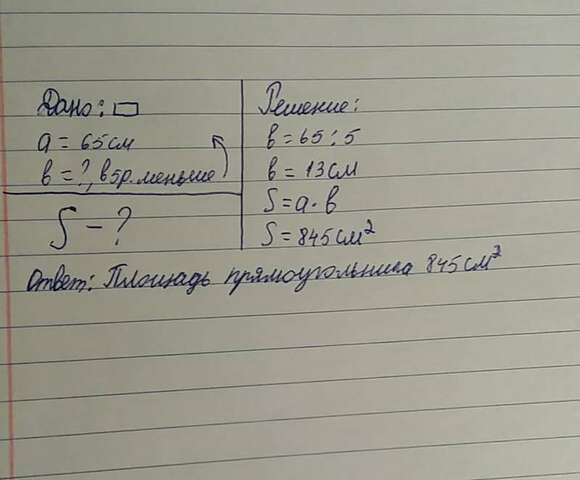 Дано: ▭
a = 65см
в = ?, в 5р. меньше
S - ?
Решение:
в = 65 : 5
в = 13см
S = a · в
S = 845см²
Ответ: Площадь прямоугольника 845см²